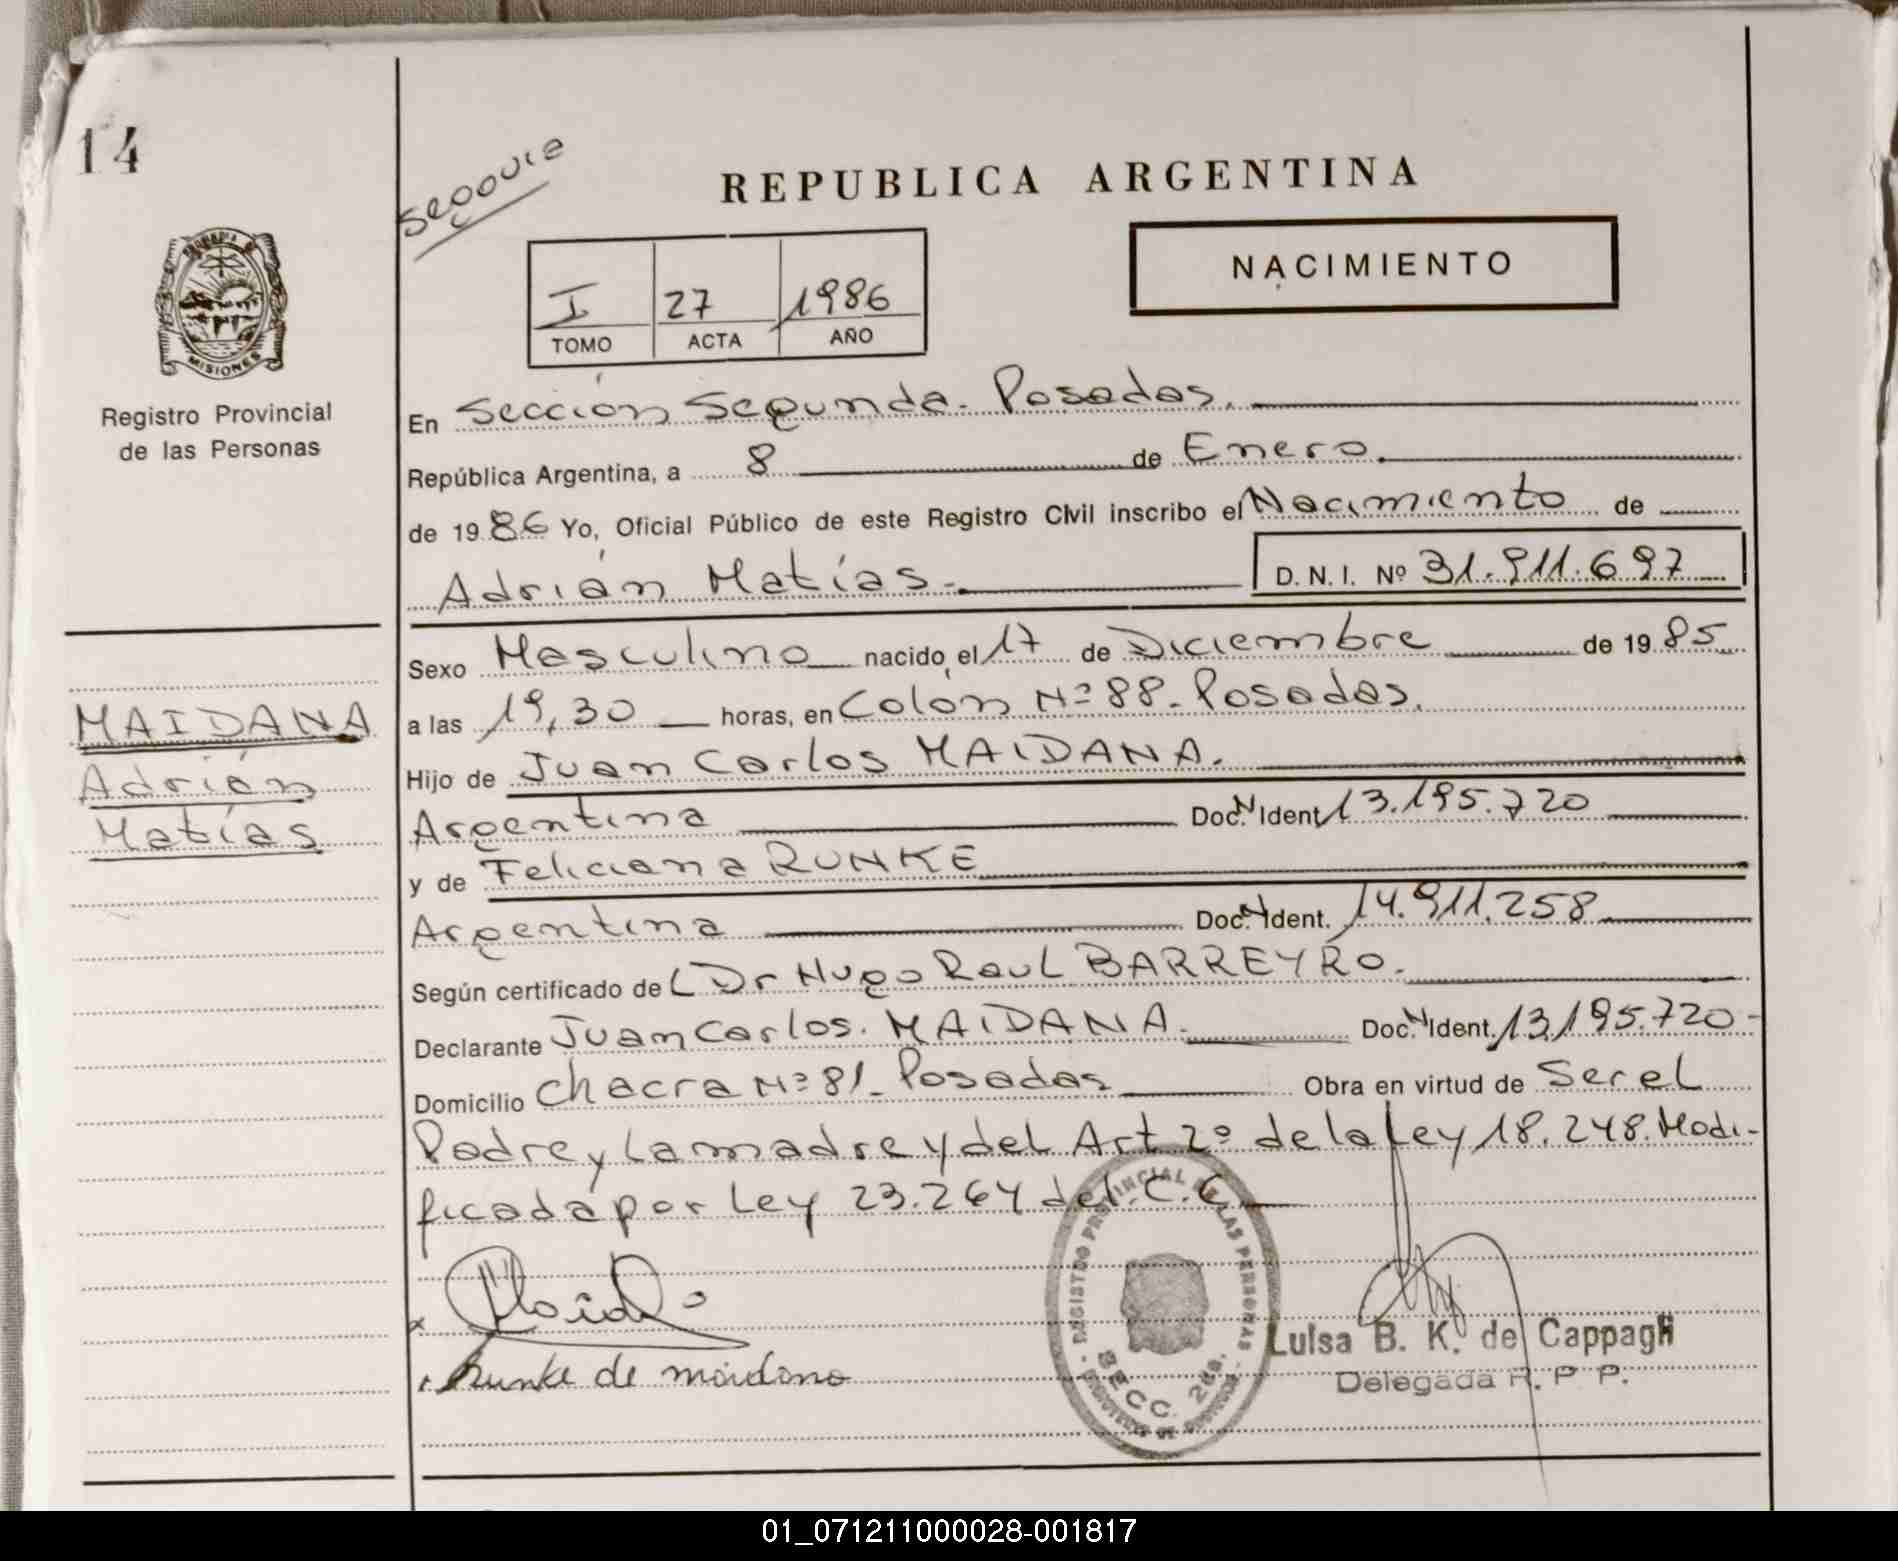 14
Segovia
REPUBLICA ARGENTINA
NACIMIENTO
I 27 1986
TOMO ACTA AÑO
MISIONES
Registro Provincial
de las Personas
En Sección Segunda. Posadas.
República Argentina, a 8 de Enero.
de 1986 Yo, Oficial Público de este Registro Civil inscribo el Nacimiento de
Adrián Matías.
D. N. I. Nº 31.911.697
Sexo Masculino nacido el 17 de Diciembre de 1985
a las 19,30 horas, en Colón Nº 88. Posadas.
MAIDANA
Adrián
Matías
Hijo de Juan Carlos MAIDANA.
Argentina Doc. N. Ident. 13.195.720
y de Feliciana RUNKE
Argentina Doc. N. Ident. 14.911.258
Según certificado del Dr Hugo Raul BARREYRO.
Declarante Juan Carlos. MAIDANA. Doc. N. Ident. 13.195.720-
Domicilio Chacra Nº 81. Posadas Obra en virtud de Ser el
Padre y La madre y del Art 2º de la Ley 18.248. Modi-
ficada por Ley 23.264 del. C.C.
Runke de maidana
REGISTRO PROVINCIAL DE LAS PERSONAS
SECC. 2da.
Luisa B. K. de Cappagli
Delegada R. P. P.
01_071211000028-001817